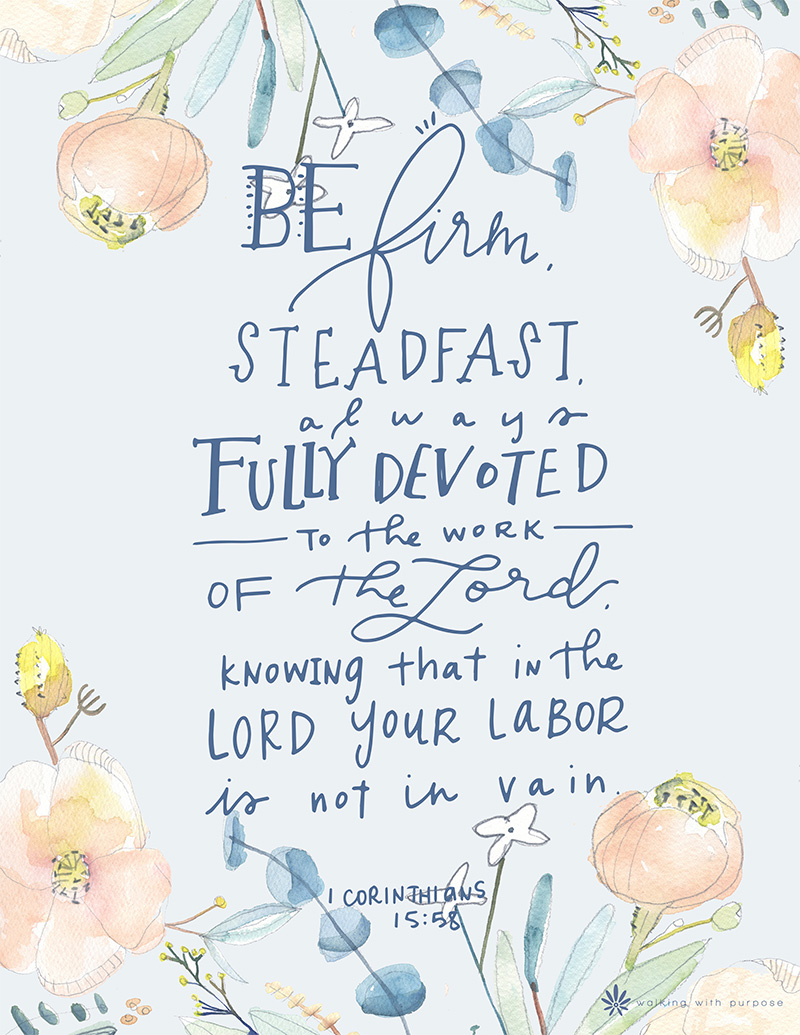 BE firm,
STEADFAST,
always
FULLY DEVOTED
TO the WORK
OF the Lord,
KNOWING that in the
LORD YOUR LABOR
is not in vain.
1 CORINTHIANS
15:58
walking with purpose